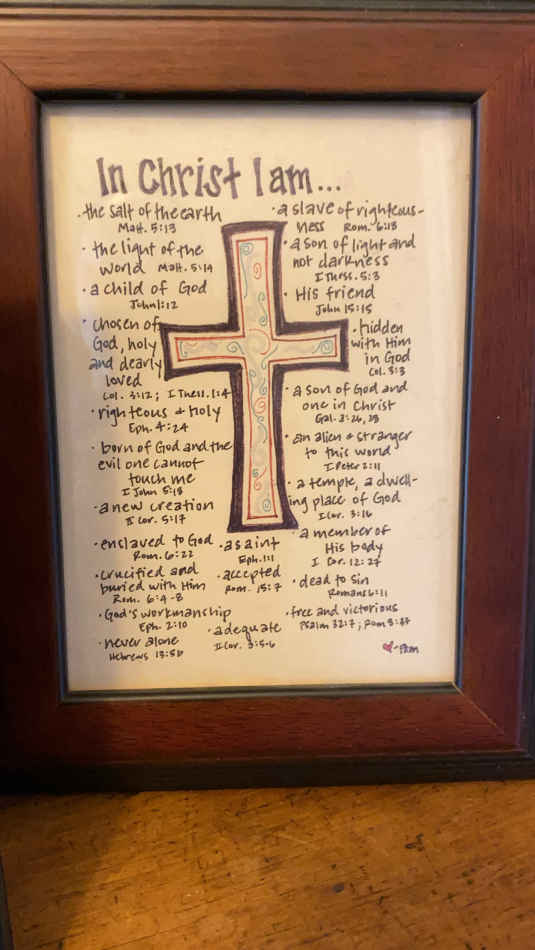 In Christ I am...
• the salt of the earth
Matt. 5:13
• the light of the
world Matt. 5:14
• a child of God
John 1:12
• chosen of
God, holy
and dearly
loved
Col. 3:12; I Thess. 1:4
• righteous & holy
Eph. 4:24
• born of God and the
evil one cannot
touch me
I John 5:18
• a new creation
II Cor. 5:17
• enslaved to God
Rom. 6:22
• crucified and
buried with Him
Rom. 6:4-8
• God's workmanship
Eph. 2:10
• never alone
Hebrews 13:5b
• a saint
Eph. 1:1
• accepted
Rom. 15:7
• adequate
II Cor. 3:5-6
• a slave of righteous-
ness Rom. 6:18
• a son of light and
not darkness
I Thess. 5:3
• His friend
John 15:15
• hidden
with Him
in God
Col. 3:3
• a son of God and
one in Christ
Gal. 3:26, 28
• an alien & stranger
to this world
I Peter 2:11
• a temple, a dwell-
ing place of God
I Cor. 3:16
• a member of
His body
I Cor. 12:27
• dead to sin
Romans 6:11
• free and victorious
Psalm 32:7; Rom 8:37
- Pam